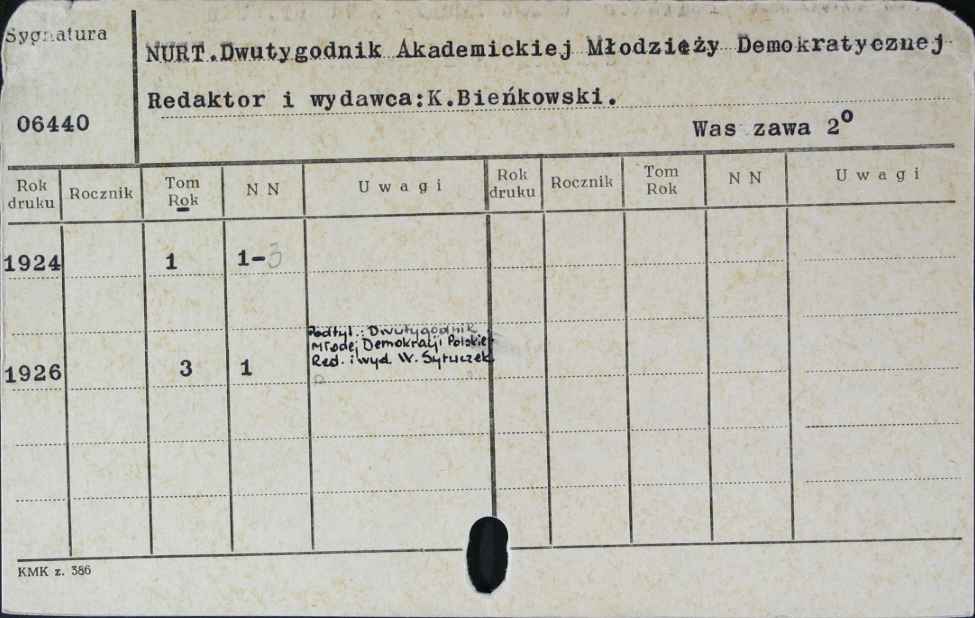 Sygnatura
NURT.Dwutygodnik Akademickiej Młodzieży Demokratycznej
Redaktor i wydawca:K.Bieńkowski.
06440
Was zawa 2⁰
Rok druku Rocznik Tom Rok N N U w a g i Rok druku Rocznik Tom Rok N N U w a g i
1924 1 1-3
Podtyt.: Dwutygodnik
Młodej Demokracji Polskiej
Red. i wyd. W. Syruczek
1926 3 1
KMK z. 386